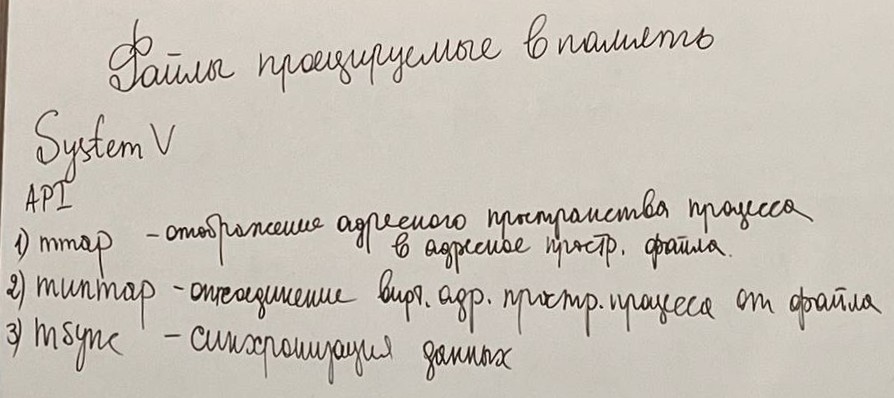 Файлы проецируемые в память
System V
API
1) mmap - отображение адресного пространства процесса
в адресное простр. файла.
2) munmap - отсоединение вирт. адр. простр. процесса от файла
3) msync - синхронизация данных